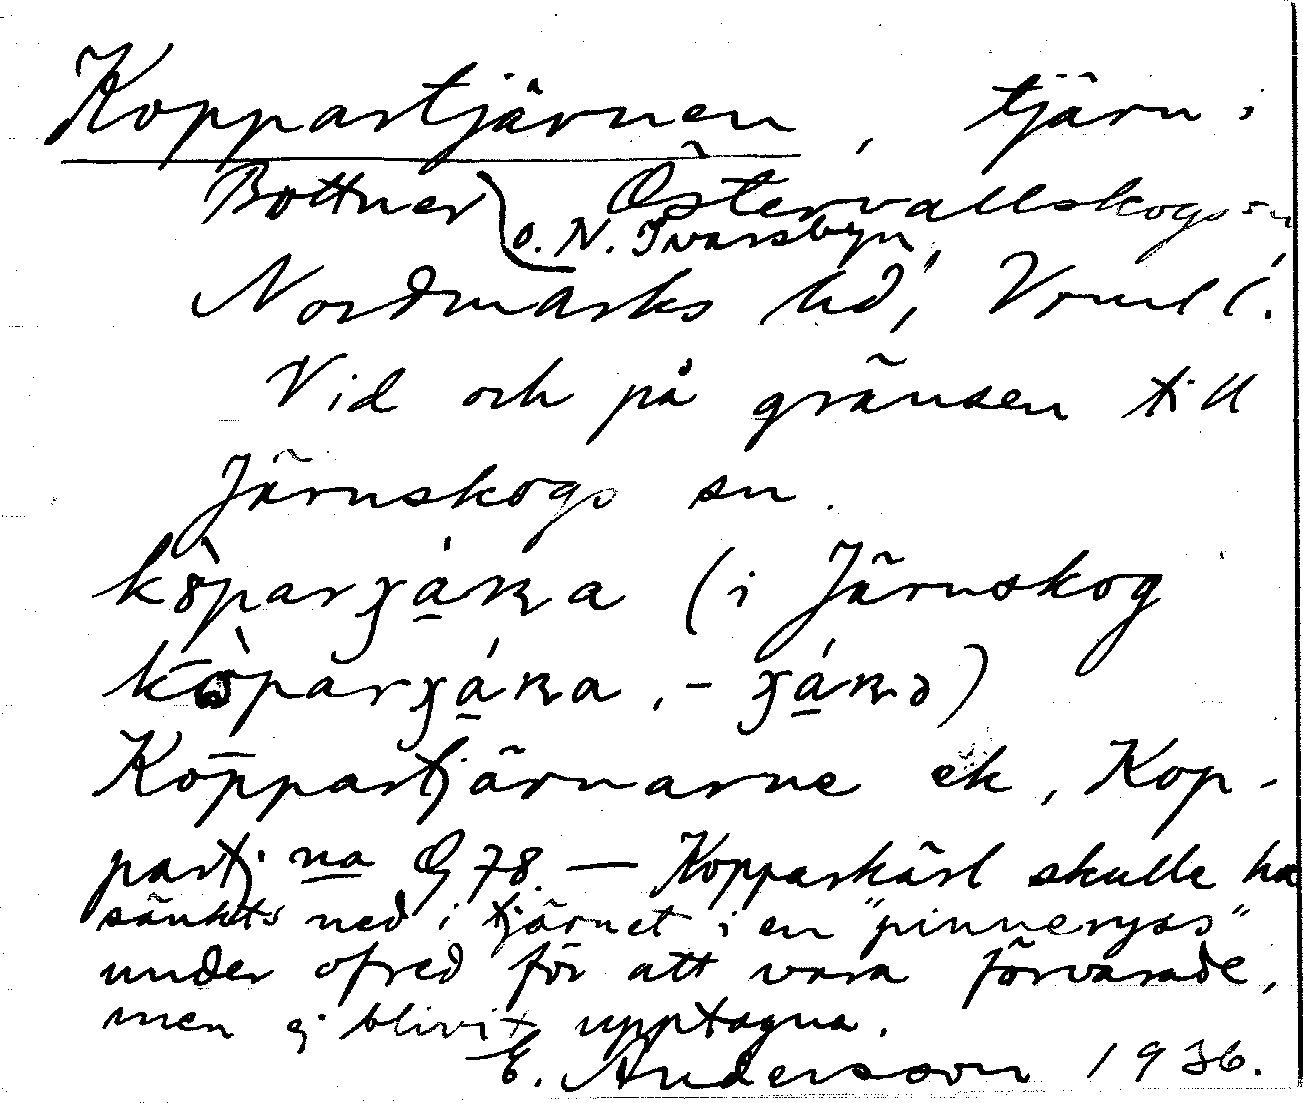 Koppartjärnen, tjärn i
Bottner Östervallskogs sn
o. N. Ivarsbyn
Nordmarks hd, Vrml l.
Vid och på gränsen till
Järnskogs sn.
(i Järnskog
Koppartjärnarne ek, Kop-
partj. na G 78. — Kopparkärl skulle ha
sänkts ned i tjärnet i en "pinneryss"
under ofred för att vara förvarade,
men ej blivit upptagna.
E. Andersson 1936.